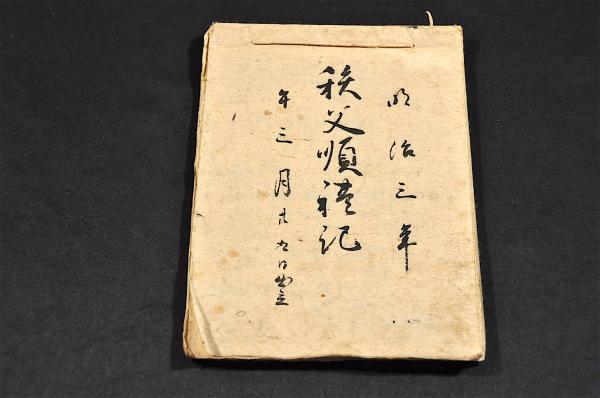 明治三年
秩父順禮記
午三月廿九日出立